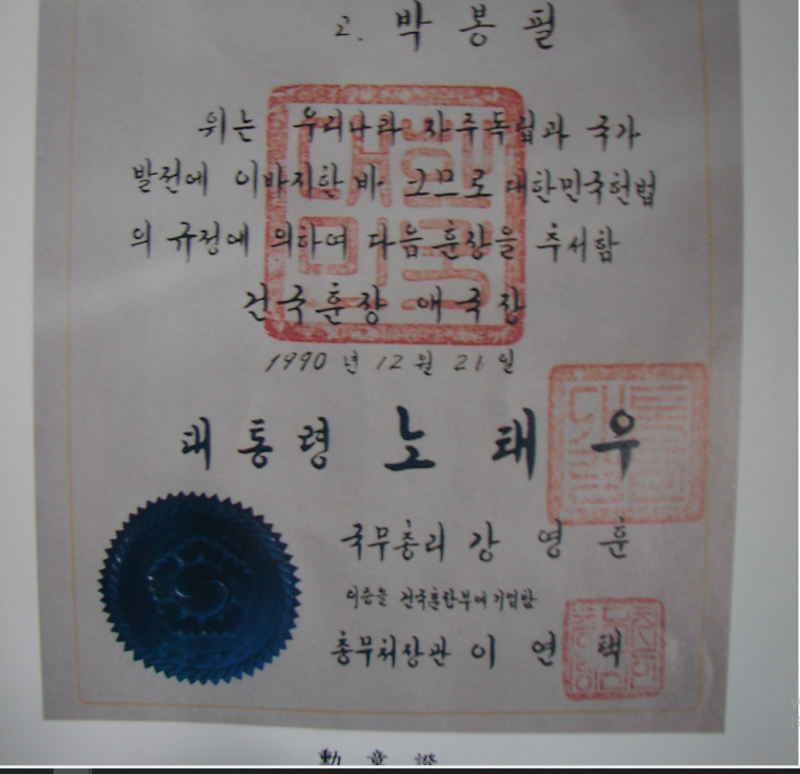 2. 박 봉 필
위는 우리나라 자주독립과 국가
발전에 이바지한 바 크므로 대한민국헌법
의 규정에 의하여 다음 훈장을 추서함
건국훈장 애국장
1990 년 12 월 26 일
대통령 노 태 우
국무총리 강 영 훈
이증을 건국훈장부에 기입함
총무처장관 이 연 택
勳 章 證